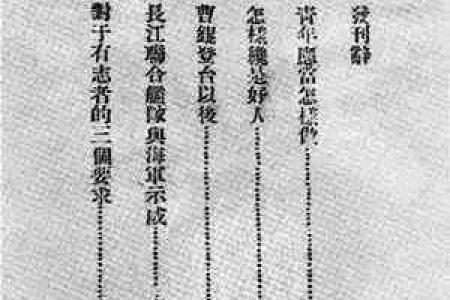 發刊辭
青年應當怎樣做
怎樣纔是好人
曹錕登台以後
長江聯合艦隊與海軍示威
對于有志者的三個要求